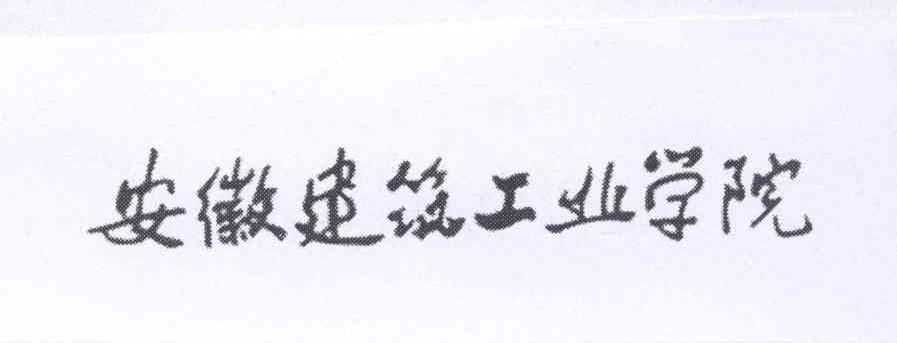 安徽建筑工业学院